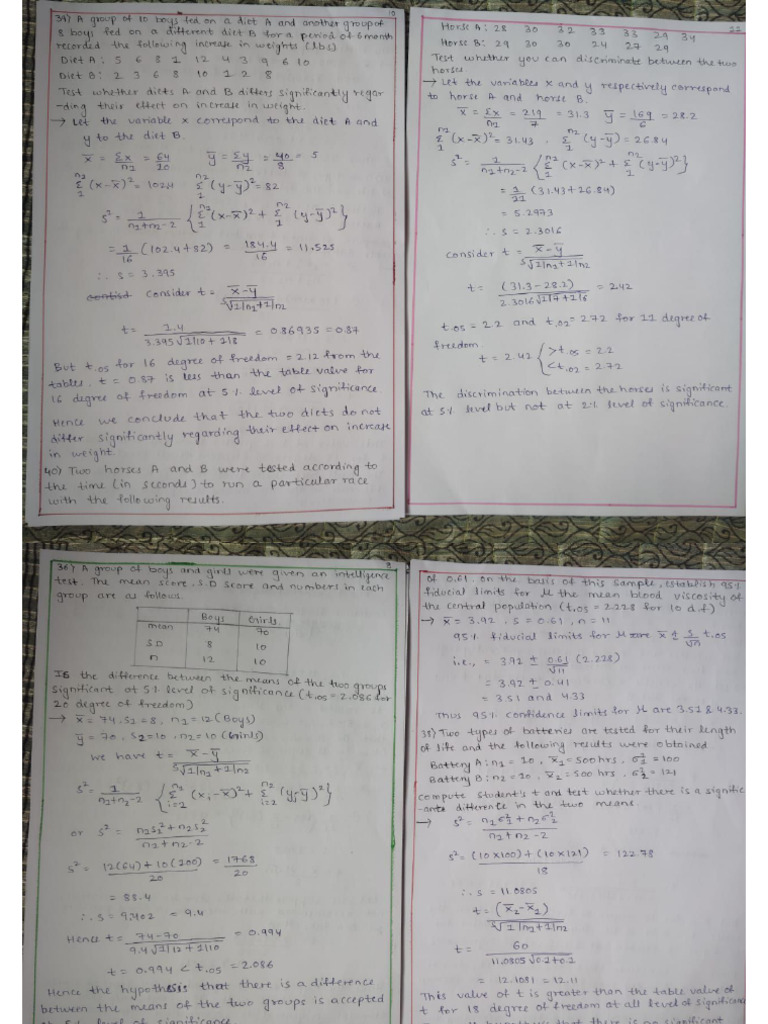 10
39) A group of 10 boys fed on a diet A and another group of
8 boys fed on a different diet B for a period of 6 month
recorded the following increase in weights (lbs)
Diet A: 5 6 8 1 12 4 3 9 6 10
Diet B: 2 3 6 8 10 1 2 8
Test whether diets A and B differs significantly regar
-ding their effect on increase in weight.
→ Let the variable x correspond to the diet A and
y to the diet B.
x̄ = Σx/n1 = 64/10 ȳ = Σy/n2 = 40/8 = 5
Σ(x-x̄)² = 102.4 Σ(y-ȳ)² = 82
s² = 1/(n1+n2-2) {Σ(x-x̄)² + Σ(y-ȳ)²}
= 1/16 (102.4+82) = 184.4/16 = 11.525
∴ s = 3.395
Consider t = (x̄-ȳ)/(s√(1/n1+1/n2))
t = 1.4/(3.395√(1/10+1/8)) = 0.86935 = 0.87
But t.05 for 16 degree of freedom = 2.12 from the
tables. t = 0.87 is less than the table value for
16 degree of freedom at 5% level of significance.
Hence we conclude that the two diets do not
differ significantly regarding their effect on increase
in weight.
40) Two horses A and B were tested according to
the time (in seconds) to run a particular race
with the following results.
11
Horse A: 28 30 32 33 33 29 34
Horse B: 29 30 30 24 27 29
Test whether you can discriminate between the two
horses.
→ Let the variables x and y respectively correspond
to horse A and horse B.
x̄ = Σx/n1 = 219/7 = 31.3 ȳ = 169/6 = 28.2
Σ(x-x̄)² = 31.43, Σ(y-ȳ) = 26.84
s² = 1/(n1+n2-2) {Σ(x-x̄)² + Σ(y-ȳ)²}
= 1/11 (31.43+26.84)
= 5.2973
∴ s = 2.3016
consider t = (x̄-ȳ)/(s√(1/n1+1/n2))
t = (31.3-28.2)/(2.3016√(1/7+1/6)) = 2.42
t.05 = 2.2 and t.02 = 2.72 for 11 degree of
freedom.
t = 2.42 { >t.05 = 2.2
<t.02 = 2.72
The discrimination between the horses is significant
at 5% level but not at 2% level of significance
9
36) A group of boys and girls were given an intelligence
test. The mean score. S.D score and numbers in each
group are as follows.
Boys Girls
mean 74 70
S.D 8 10
n 12 10
Is the difference between the means of the two groups
significant at 5% level of significance (t.05 = 2.086 for
20 degree of freedom)
→ x̄ = 74, s1 = 8, n1 = 12 (Boys)
ȳ = 70, s2 = 10, n2 = 10 (Girls)
we have t = (x̄-ȳ)/(s√(1/n1+1/n2))
s² = 1/(n1+n2-2) {Σ(xi-x̄)² + Σ(yi-ȳ)²}
or s² = (n1s1²+n2s2²)/(n1+n2-2)
s² = (12(64)+10(100))/20 = 1768/20
= 88.4
∴ s = 9.402 = 9.4
Hence t = (74-70)/(9.4√(1/12+1/10)) = 0.994
t = 0.994 < t.05 = 2.086
Hence the hypothesis that there is a difference
between the means of the two groups is accepted
at 5% level of significance.
of 0.61. on the basis of this sample, establish 95%
fiducial limits for μ the mean blood viscosity of
the central population (t.05 = 2.228 for 10 d.f)
→ x̄ = 3.92, s = 0.61, n = 11
95% fiducial limits for μ are x̄ ± s/√n t.05
i.e., = 3.92 ± 0.61/√11 (2.228)
= 3.92 ± 0.41
= 3.51 and 4.33
Thus 95% confidence limits for μ are 3.51 & 4.33.
38) Two types of batteries are tested for their length
of life and the following results were obtained.
Battery A: n1 = 10, x̄1 = 500 hrs, σ1² = 100
Battery B: n2 = 10, x̄2 = 500 hrs, σ2² = 121
compute Student's t and test whether there is a signific
-ant difference in the two means.
→ s² = (n1σ1²+n2σ2²)/(n1+n2-2)
s² = ((10×100)+(10×121))/18 = 122.78
∴ s = 11.0805
t = (x̄2-x̄1)/(s√(1/n1+1/n2))
t = 60/(11.0805√(0.1+0.1))
= 12.1081 = 12.11
This value of t is greater than the table value of
t for 18 degree of freedom at all level of significan
hypothesis that there is no significant